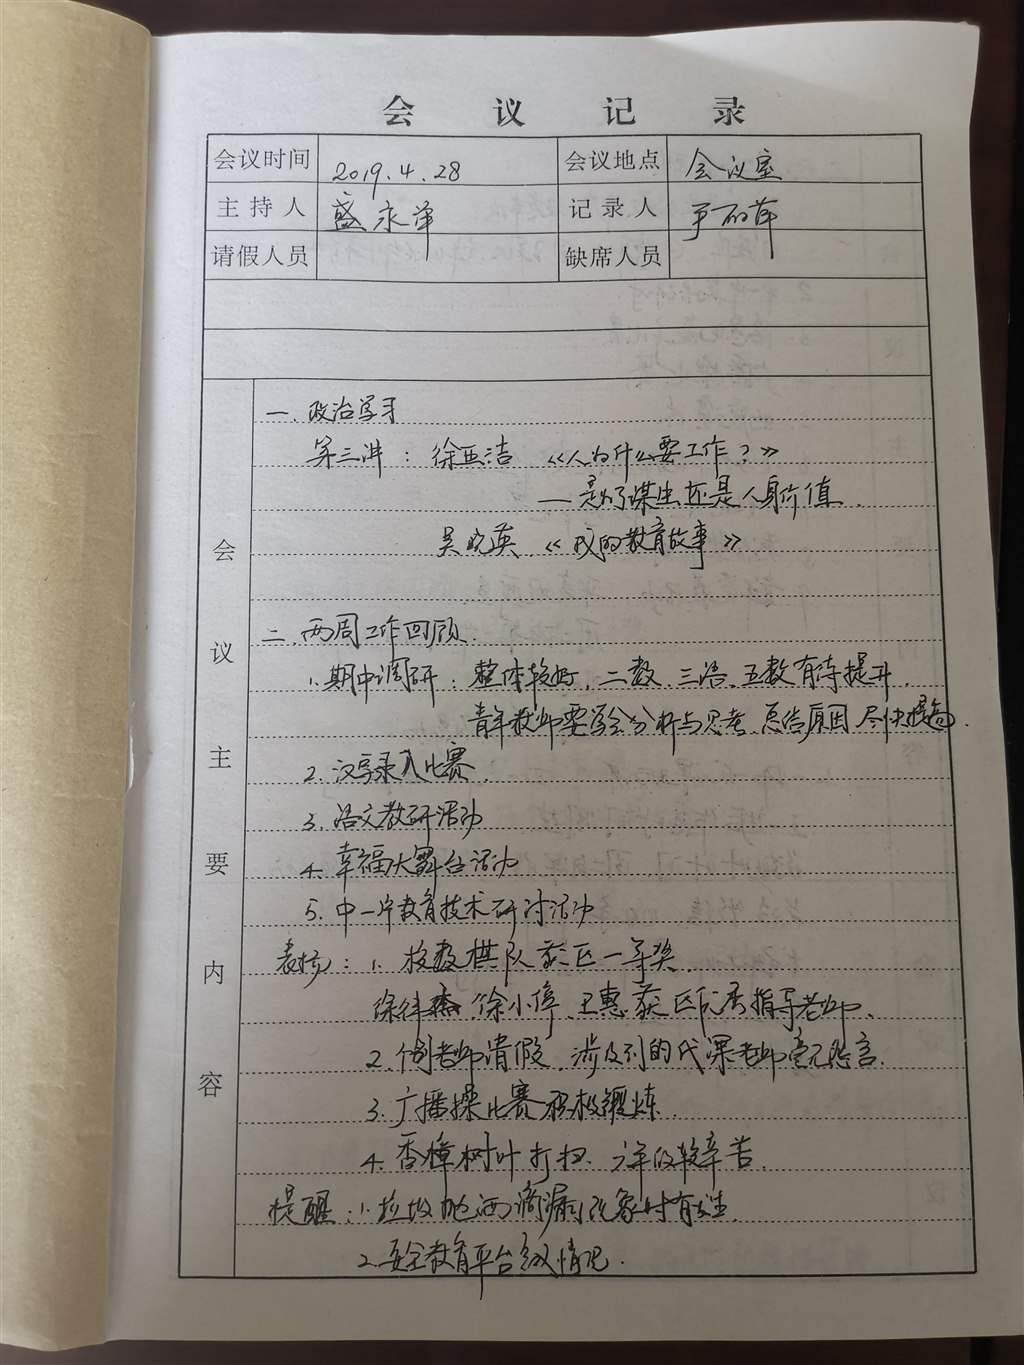 会议记录
会议时间 2019.4.28 会议地点 会议室
主持人 盛永 记录人
请假人员 缺席人员
会议主要内容
一.政治学习
第三讲：徐亚洁 《人为什么要工作？》
—是为了谋生还是人身价值.
吴晓英 《我的教育故事》
二.两周工作回顾.
1.期中调研：整体较好，二数、三语、五数有待提升.
青年教师要学会分析与思考，总结原因，尽快提高.
2.汉字录入比赛.
3.语文教研活动
4.幸福大舞台活动
5.中一片教育技术研讨活动
表扬：1.校数棋队获区一等奖.
徐小停、王惠获区优秀指导老师.
2.个别老师请假，涉及到的代课老师毫无怨言.
3.广播操比赛积极锻炼.
4.香樟树叶打扫、较辛苦.
提醒：1.垃圾抛洒滴漏现象时有发生.
2.安全教育平台情况.